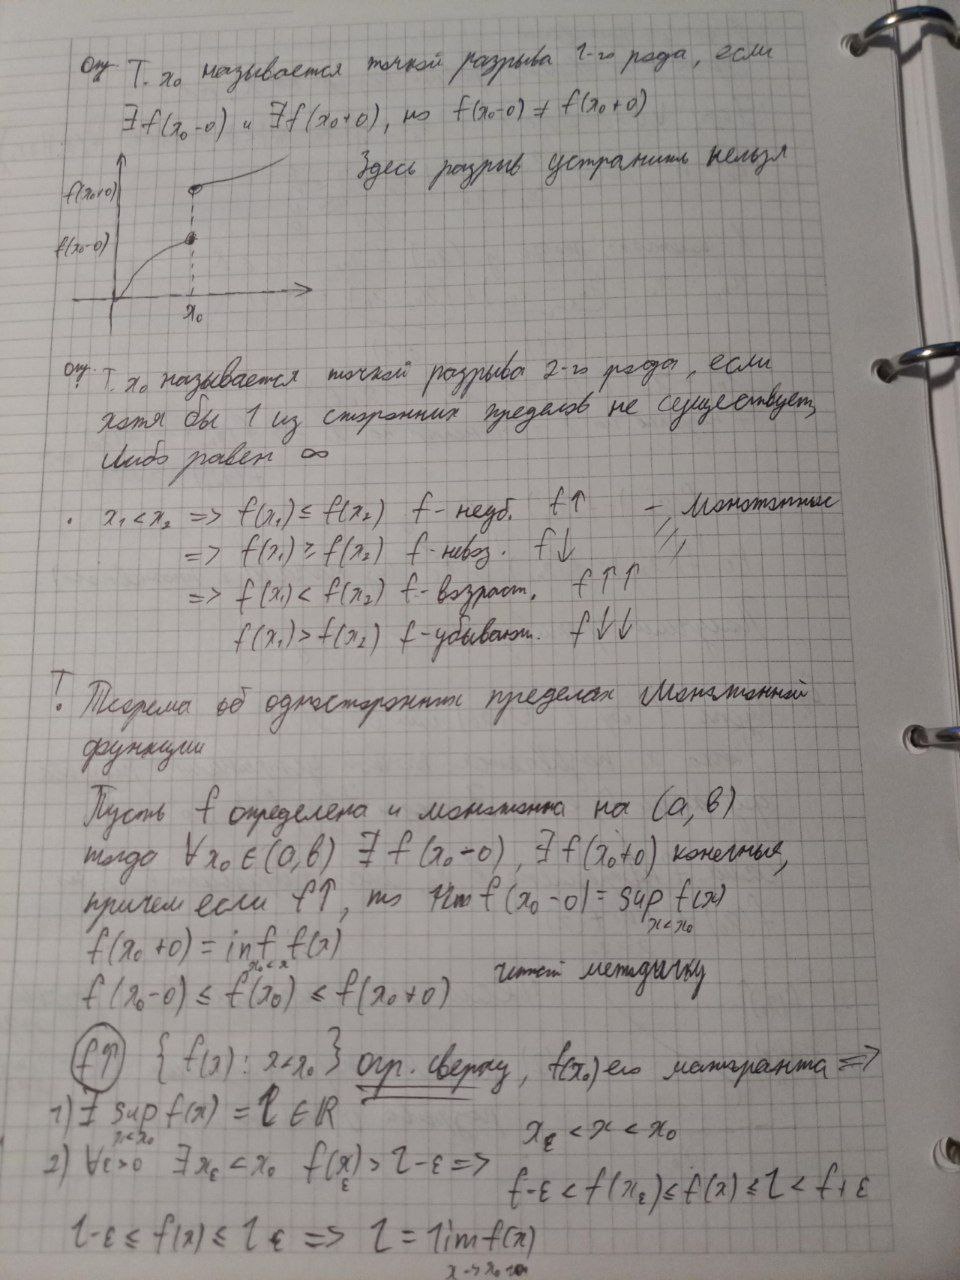 Опр. Т. x₀ называется точкой разрыва 1-го рода, если
∃f(x₀-0) и ∃f(x₀+0), но f(x₀-0) ≠ f(x₀+0)
Здесь разрыв устранить нельзя
f(x₀+0)
f(x₀-0)
x₀
Опр. Т. x₀ называется точкой разрыва 2-го рода, если
хотя бы 1 из сторонних пределов не существует,
либо равен ∞
· x₁ < x₂ => f(x₁) ≤ f(x₂) f - неуб. f↑ - монотонные
=> f(x₁) ≥ f(x₂) f - невоз. f↓
=> f(x₁) < f(x₂) f - возраст. f↑↑
f(x₁) > f(x₂) f - убывают. f↓↓
Т
· Теорема об односторонних пределах монотонной
функции
Пусть f определена и монотонна на (a, b)
тогда ∀x₀ ∈ (a, b) ∃ f(x₀-0), ∃ f(x₀+0) конечные,
причем если f↑, то f(x₀-0) = sup f(x)
x<x₀
f(x₀+0) = inf f(x)
x₀<x
f(x₀-0) ≤ f(x₀) ≤ f(x₀+0)
методичку
f↑ { f(x) : x<x₀ } огр. сверху, f(x₀) его мажоранта =>
1) ∃ sup f(x) = l ∈ ℝ
x<x₀
x_ε < x < x₀
2) ∀ε>0 ∃x_ε < x₀ f(x_ε) > l-ε =>
f-ε < f(x_ε) ≤ f(x) ≤ l < f+ε
l-ε ≤ f(x) ≤ l ε => l = lim f(x)